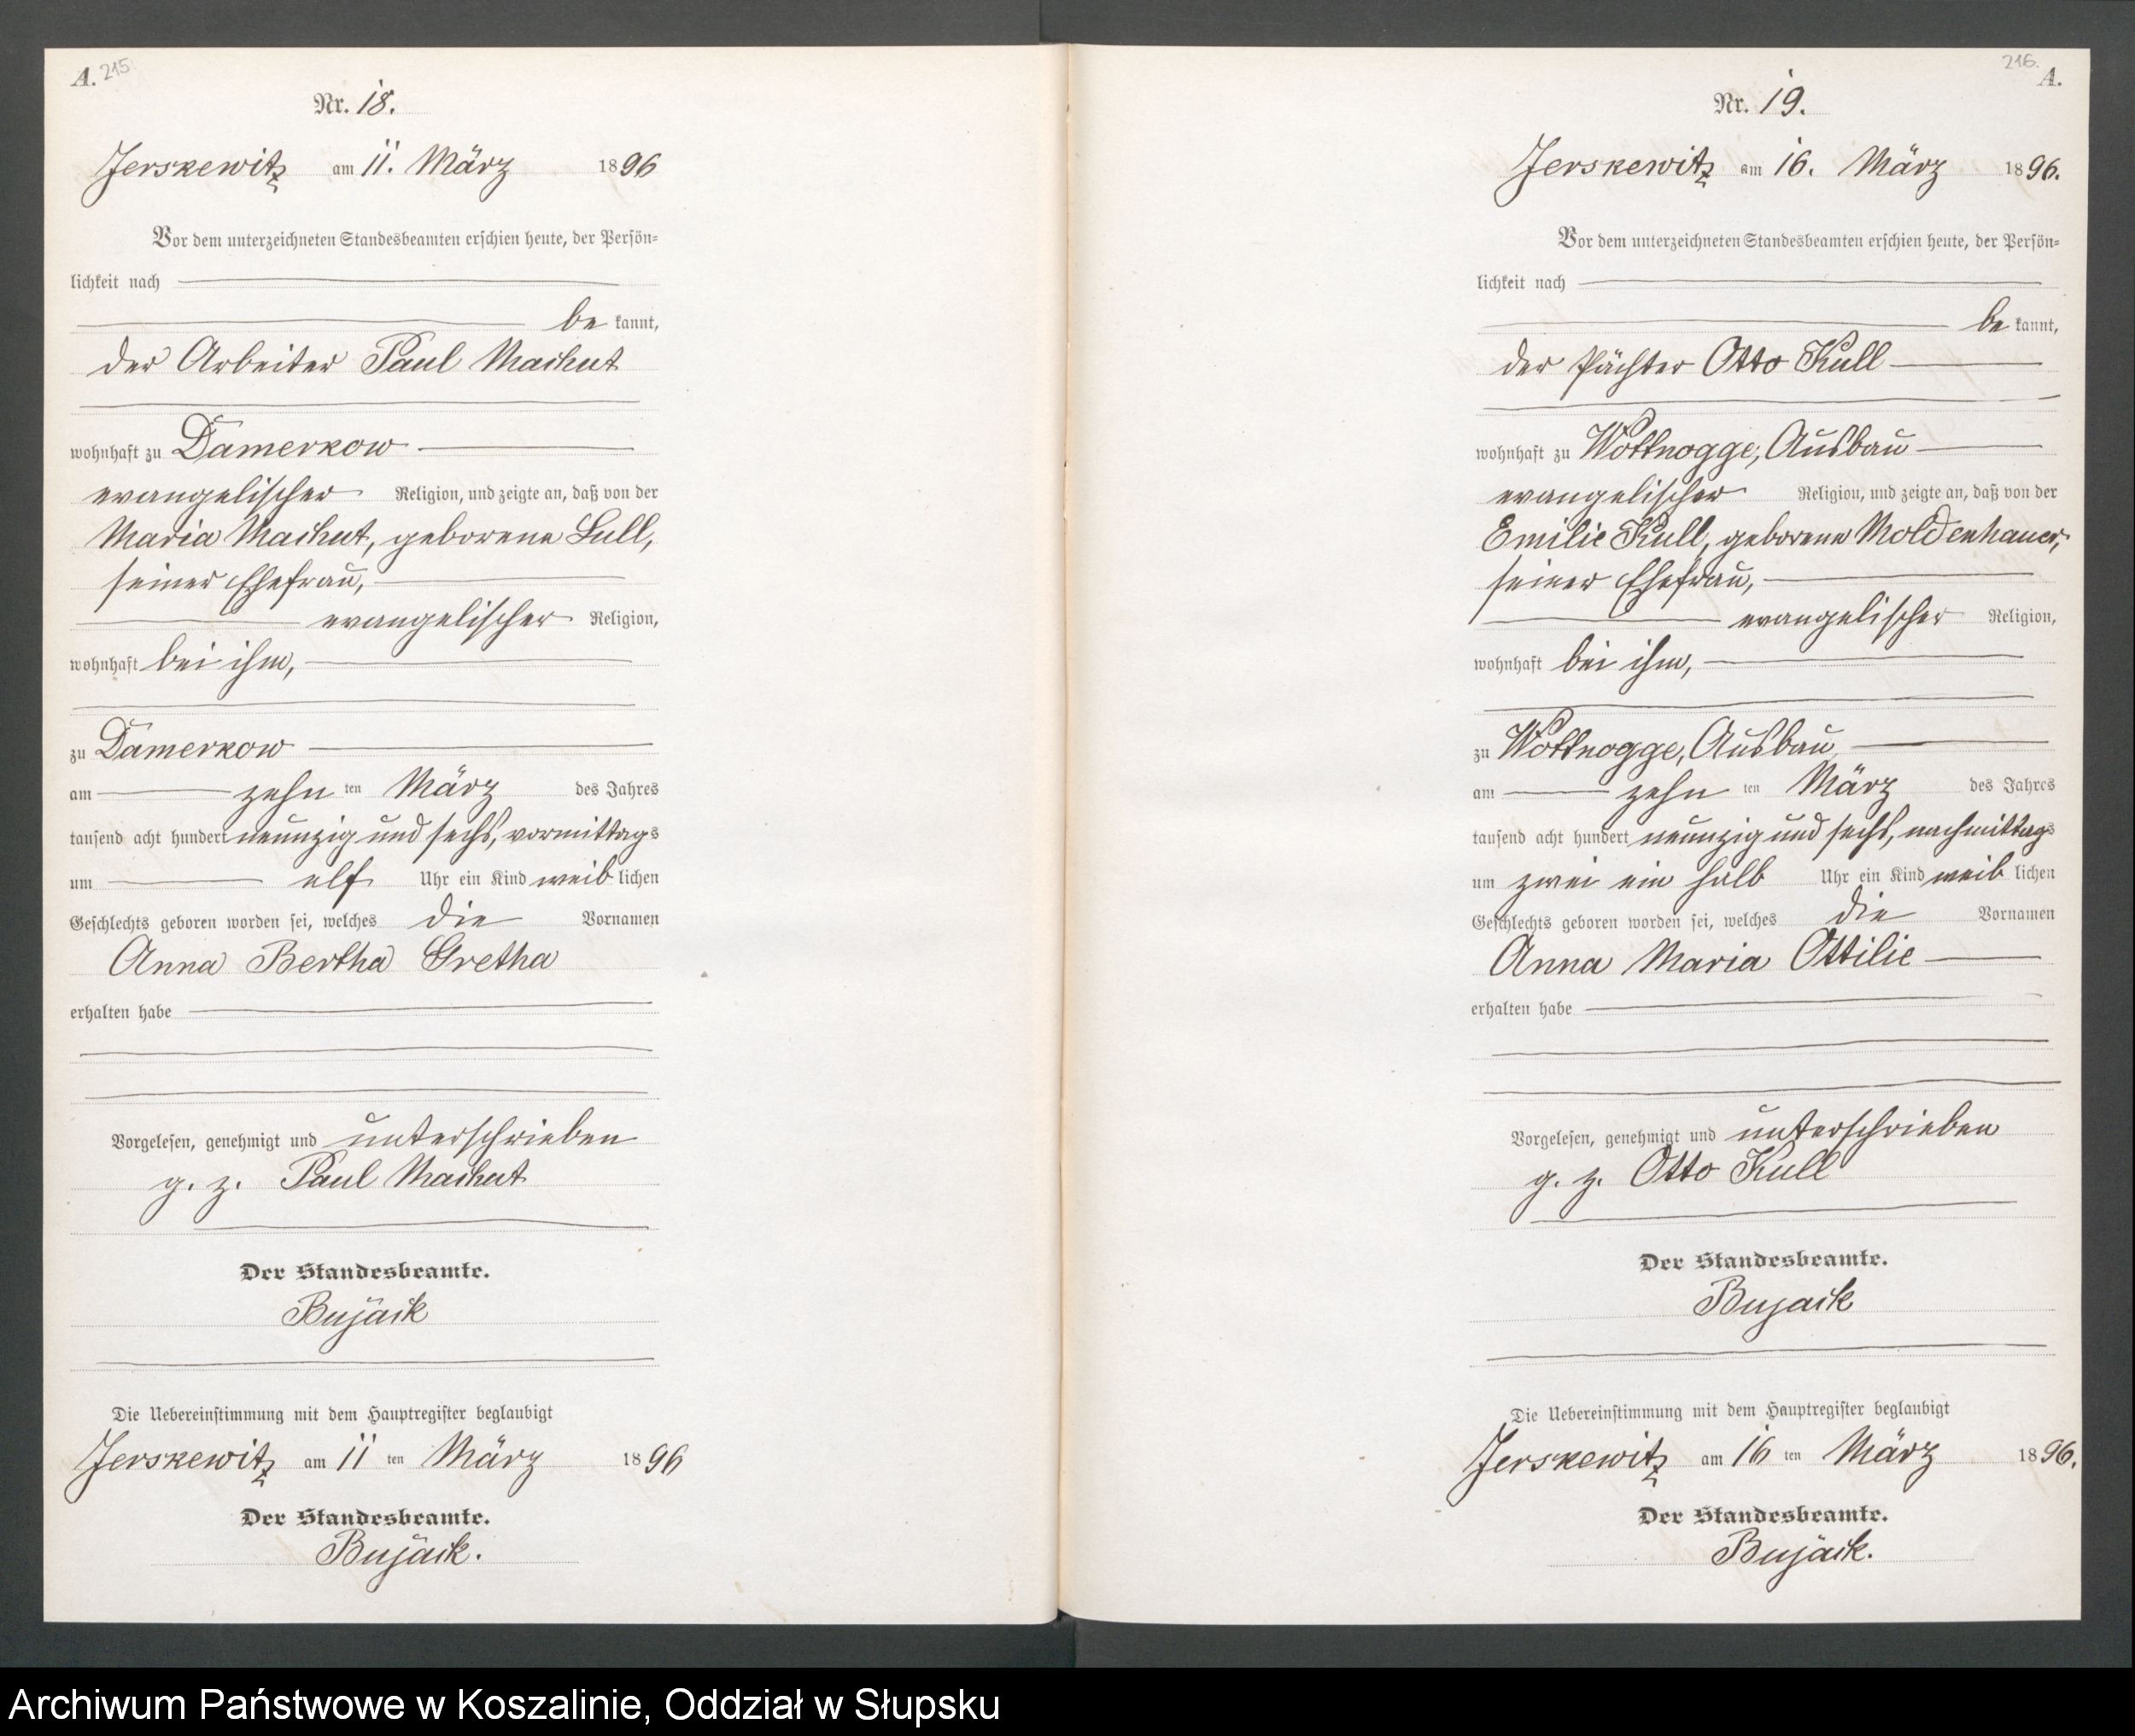 A. 215
Nr. 18.
Jerskewitz am 11. März 1896
Vor dem unterzeichneten Standesbeamten erschien heute, der Persön-
lichkeit nach
be kannt,
der Arbeiter Paul Machut
wohnhaft zu Damerkow
evangelischer Religion, und zeigte an, daß von der
Maria Machut, geborene Lull,
seiner Ehefrau,
evangelischer Religion,
wohnhaft bei ihm,
zu Damerkow
am zehn ten März des Jahres
tausend acht hundert neunzig und sechs, vormittags
um elf Uhr ein Kind weib lichen
Geschlechts geboren worden sei, welches die Vornamen
Anna Bertha Gretha
erhalten habe
Vorgelesen, genehmigt und unterschrieben
g. z. Paul Machut
Der Standesbeamte.
Bujack
Die Uebereinstimmung mit dem Hauptregister beglaubigt
Jerskewitz am 11 ten März 1896
Der Standesbeamte.
Bujack.
216. A.
Nr. 19.
Jerskewitz am 16. März 1896.
Vor dem unterzeichneten Standesbeamten erschien heute, der Persön-
lichkeit nach
be kannt,
der Pächter Otto Kull
wohnhaft zu Wottnogge, Ausbau
evangelischer Religion, und zeigte an, daß von der
Emilie Kull, geborene Moldenhauer,
seiner Ehefrau,
evangelischer Religion,
wohnhaft bei ihm,
zu Wottnogge, Ausbau
am zehn ten März des Jahres
tausend acht hundert neunzig und sechs, nachmittags
um zwei ein halb Uhr ein Kind weib lichen
Geschlechts geboren worden sei, welches die Vornamen
Anna Maria Ottilie
erhalten habe
Vorgelesen, genehmigt und unterschrieben
g. z. Otto Kull
Der Standesbeamte.
Bujack
Die Uebereinstimmung mit dem Hauptregister beglaubigt
Jerskewitz am 16 ten März 1896.
Der Standesbeamte.
Bujack.
Archiwum Państwowe w Koszalinie, Oddział w Słupsku